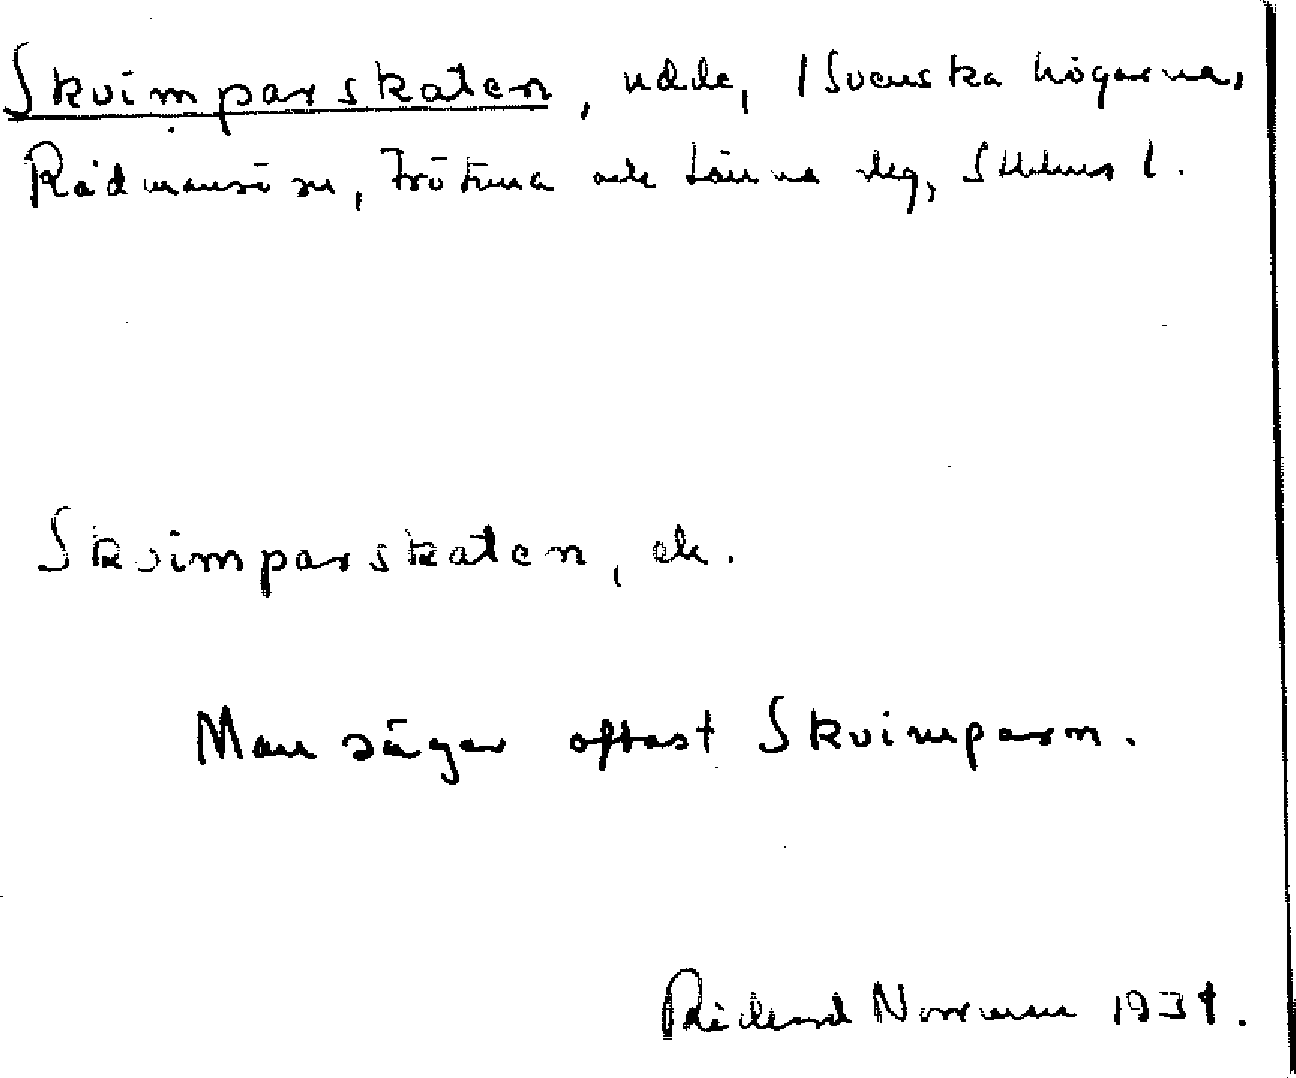 Skvimparskaten, udde, i Svenska högarna,
Rådmansö sn, Frötuna och Länna slg, Sthlms l.
Skvimparskaten, ek.
Man säger oftast Skvimparn.
Rickard Norrman 193